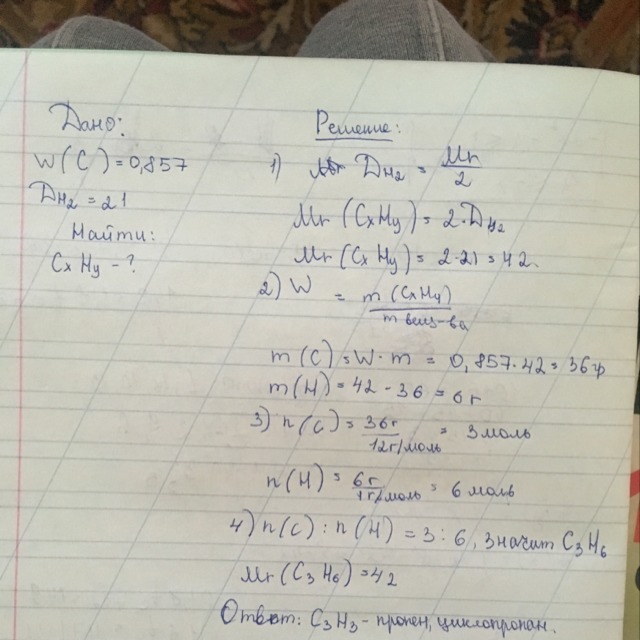 Дано:
W(C) = 0,857
DH2 = 21
Найти:
CxHy - ?
Решение:
1) DH2 = Mr/2
Mr (CxHy) = 2·DH2
Mr (CxHy) = 2·21 = 42.
2) W = m (CxHy)/m вещ-ва
m(C) = W·m = 0,857·42 = 36 гр
m(H) = 42 - 36 = 6 г
3) n(C) = 36г/12г/моль = 3 моль
n(H) = 6г/1г/моль = 6 моль
4) n(C) : n(H) = 3 : 6, значит C3H6
Mr(C3H6) = 42
Ответ: C3H3 - пропен, циклопропан.